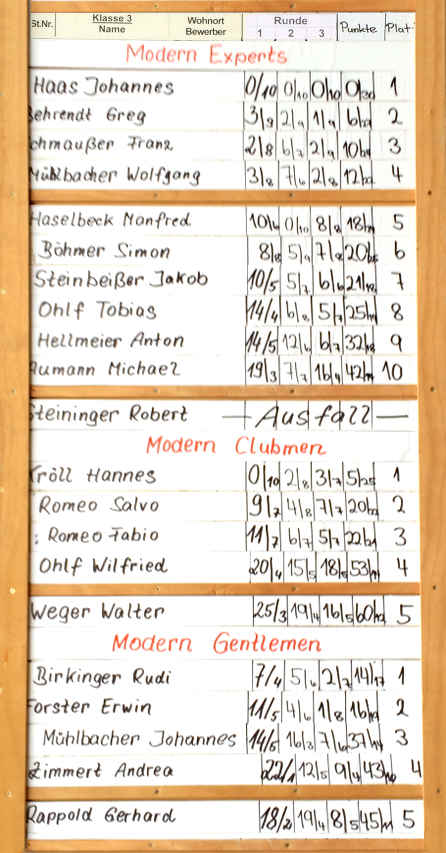 St.Nr. Klasse 3 Name Wohnort Bewerber Runde 1 2 3 Punkte Plat
Modern Experts
Haas Johannes 0/10 0/10 0/10 0/30 1
Behrendt Greg 3/9 2/9 1/9 2
chmaußer Franz 2/8 6/7 2/9 3
Mühlbacher Wolfgang 3/8 7/6 2/8 4
Haselbeck Manfred 0/10 8/8 5
Böhmer Simon 8/8 5/9 6
Steinbeißer Jakob 10/5 5/7 7
Ohlf Tobias 14/4 6/8 5/7 8
Hellmeier Anton 14/5 12/6 6/7 9
Aumann Michael 19/3 7/7 16/4 10
Steininger Robert — Ausfall —
Modern Clubmen
Kröll Hannes 0/10 2/8 3/7 5/25 1
Romeo Salvo 9/7 4/8 7/7 2
Romeo Fabio 11/7 6/7 5/7 3
Ohlf Wilfried 20/4 15/5 18/5 4
Weger Walter 25/3 19/4 16/5 5
Modern Gentlemen
Birkinger Rudi 7/4 5/6 2/7 14/17 1
Forster Erwin 11/5 4/6 1/8 2
Mühlbacher Johannes 14/5 16/3 7/6 3
Zimmert Andrea 22/1 12/5 9/4 4
Rappold Gerhard 18/2 19/4 8/5 45/11 5